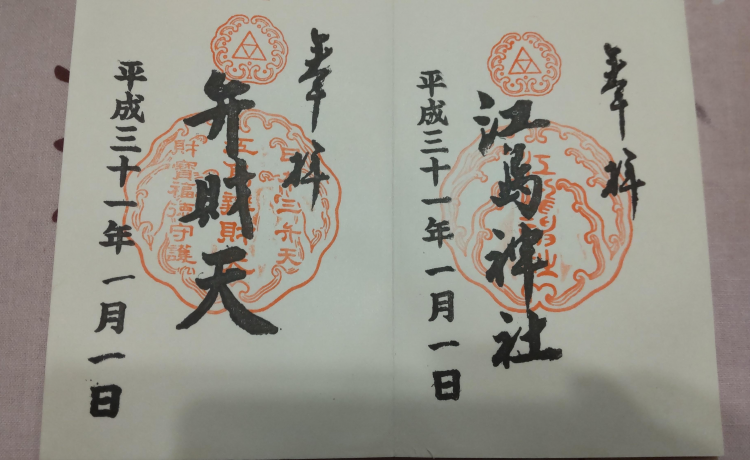 奉拝
江島神社
平成三十一年一月一日
奉拝
弁財天
日本三弁天
財寶福徳守護
平成三十一年一月一日